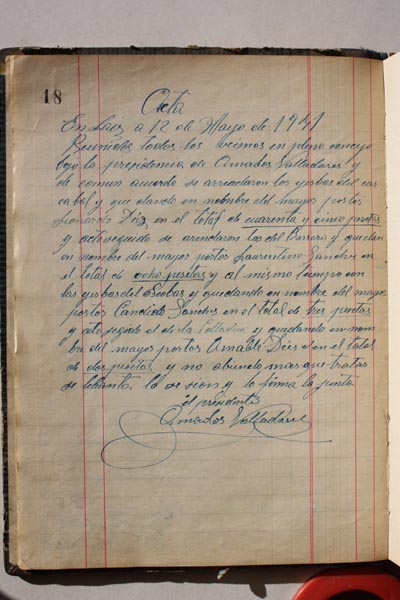 18
Acta
En Lúis a 12 de Mayo de 1941
Reunidos todos los vecinos en pleno concejo
bajo la presidencia de Amados Valladares y
de comun acuerdo se arrendaron los yerbas del cas
cabal y quedando en nombre del mayor postor
Leonardo Diz en el total de cuarenta y cinco pesetas
y acto seguido se arrendaron las del y quedan
en nombre del mayor postor Laurentino Sanches en
el total de ocho pesetas y al mismo tiempo con
las yerbas del Escobas y quedando en nombre del mayor
postor Candido Sanches en el total de tres pesetas
y acto seguido el de la Colladina y quedando en nom
bre del mayor postor Amable Diez en el total
de dos pesetas y no abiendo mas que tratar
se lebanto la sesion y lo firma la junta
el presidente
Amados Valladares